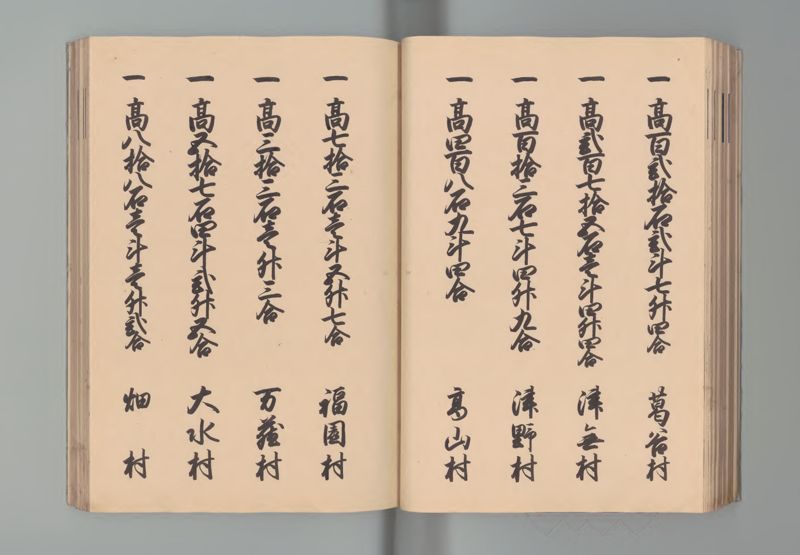 一 高百弐拾石弐斗七升四合 葛谷村
一 高弐百七拾五石壱斗四升四合 津無村
一 高百拾三石七斗四升九合 津野村
一 高四百八石九斗四合 高山村
一 高七拾二石壱斗五升七合 福園村
一 高三拾三石壱升三合 万蔵村
一 高五拾七石四斗弐升五合 大水村
一 高八拾八石壱斗壱升弐合 畑村